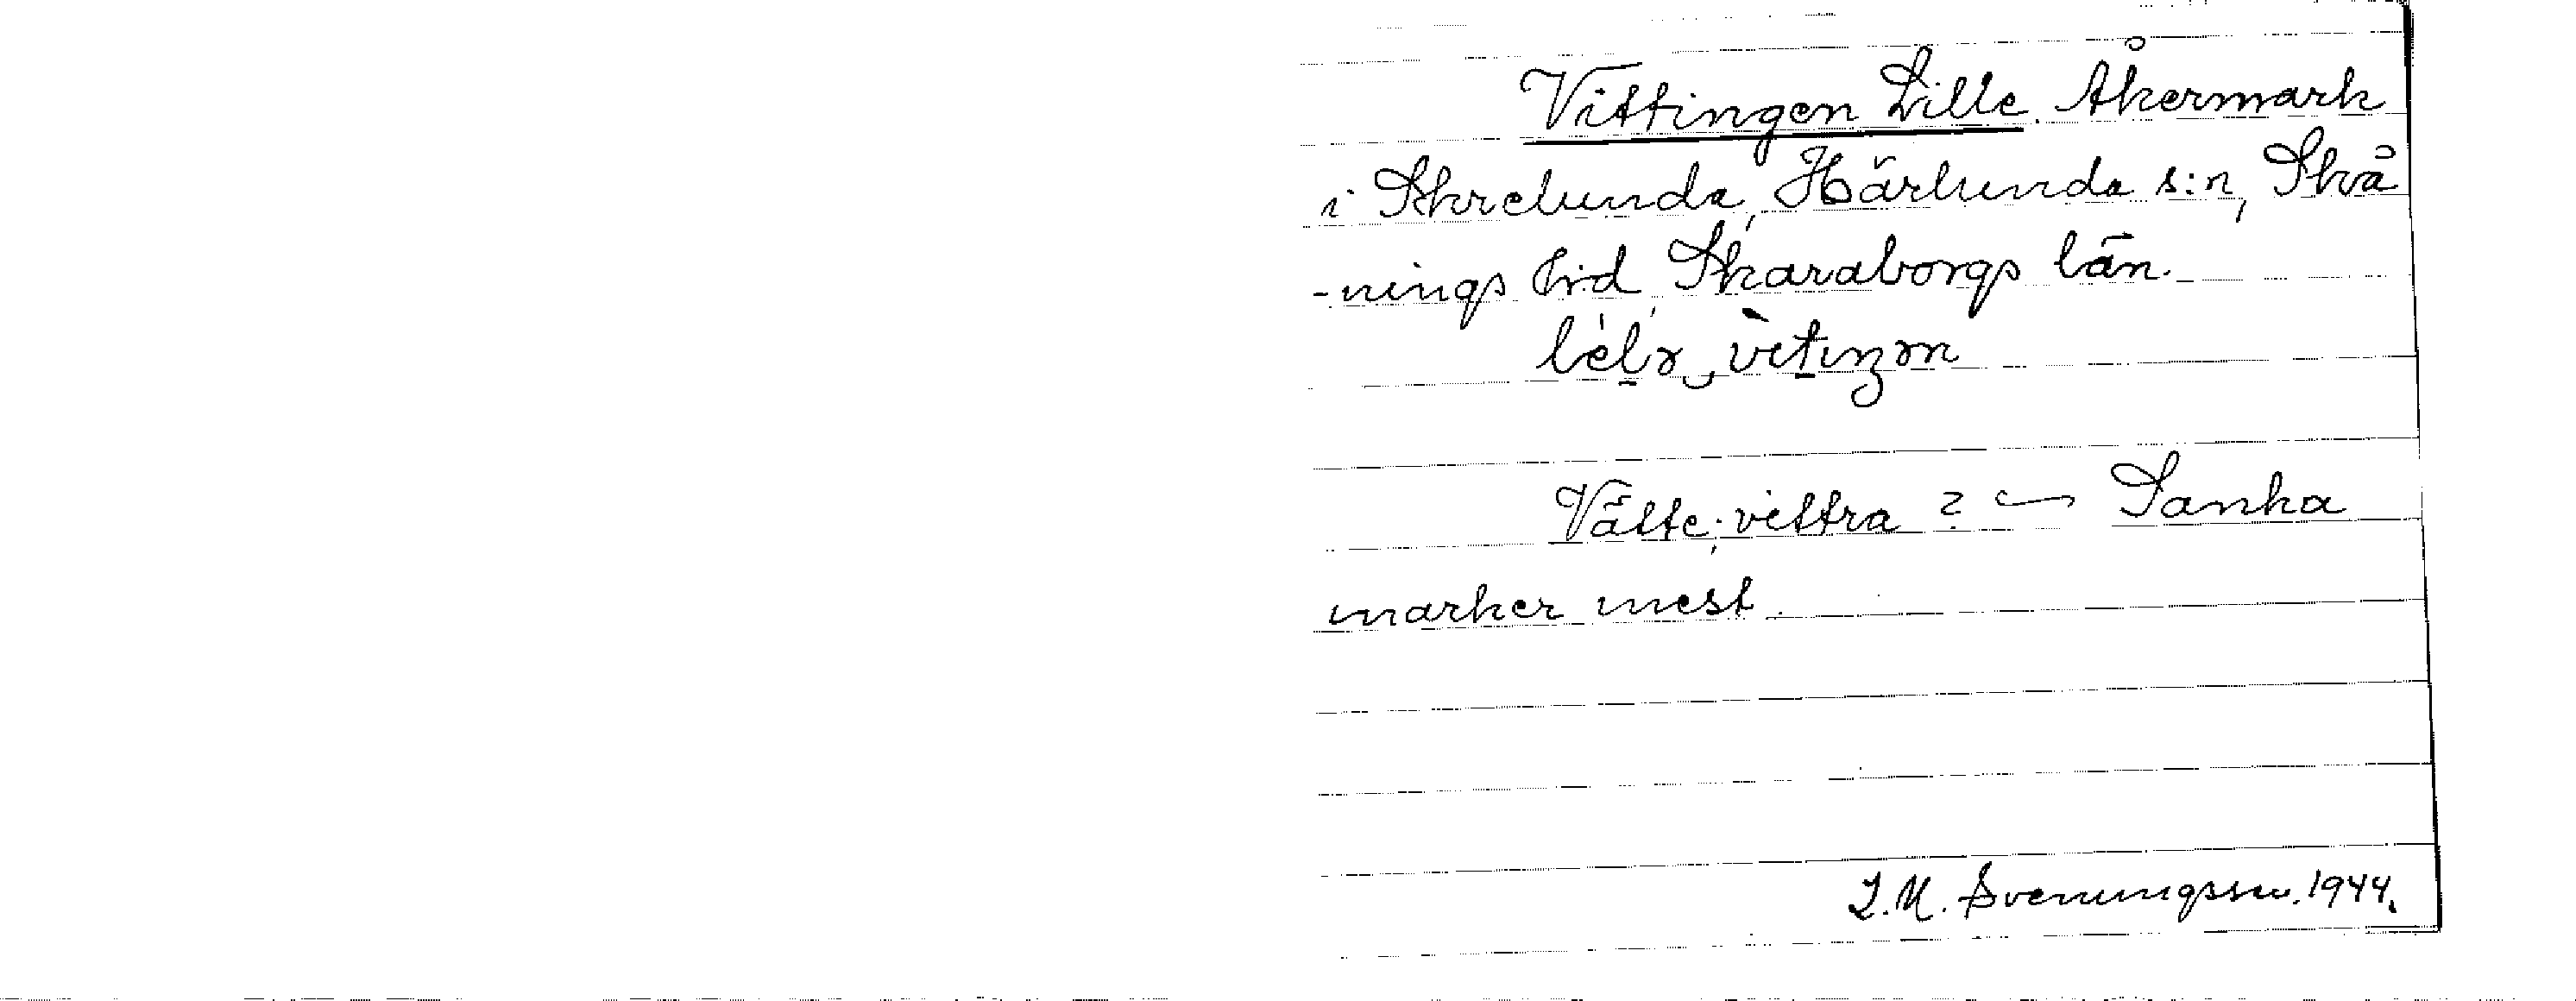 Vittingen Lille. Åkermark
i Skrelunda, Härlunda s:n, Skå
-nings h:d, Skaraborgs län.
Vätte; vettra ? Sanka
marker mest.
J. M. Svenungsson. 1944.